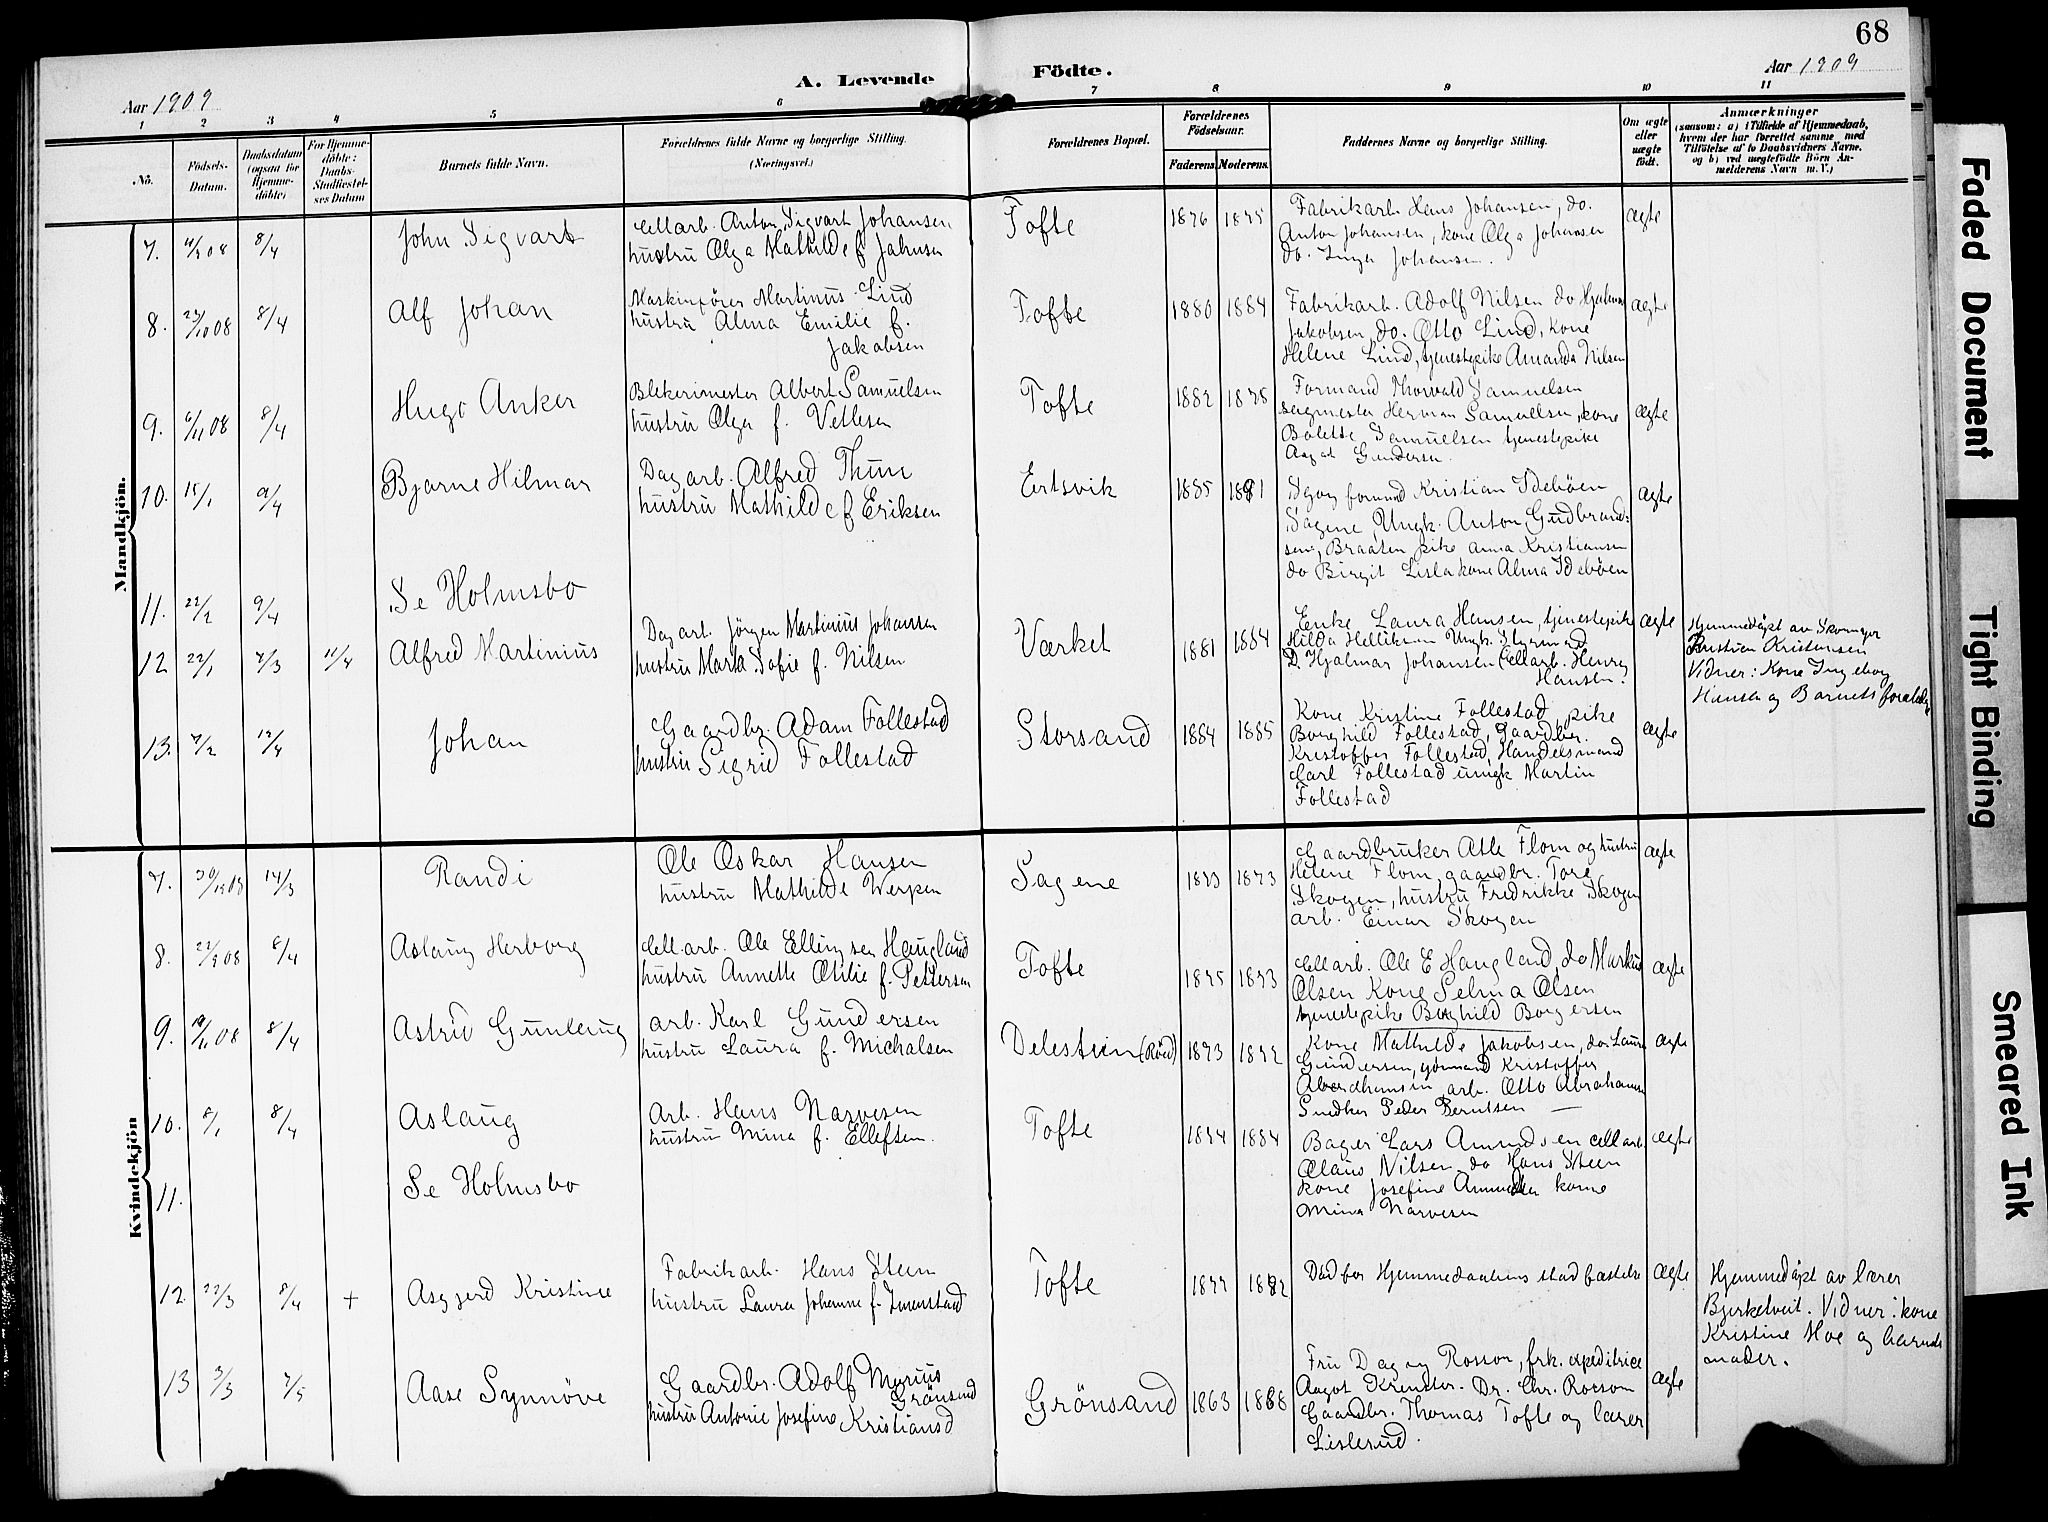 68
A. Levende Födte.
Aar 1909
Aar 1909
1 2 3 4 5 6 7 8 9 10 11
No.
Födsels-Datum.
Daabsdatum (ogsaa for Hjemme-döbte)
For Hjemme-döbte: Daabs-Stadfæstel-ses Datum
Barnets fulde Navn.
Forældrenes fulde Navne og borgerlige Stilling. (Næringsvei.)
Forældrenes Bopæl.
Forældrenes Födselsaar.
Faderens. Moderens.
Faddernes Navne og borgerlige Stilling.
Om ægte eller uægte födt.
Anmærkninger
(saasom: a) i Tilfælde af Hjemmedaab,
hvem der har forrettet samme med
Tilföielse af to Daabsvidners Navne.
og b) ved uægtefödte Börn An-
melderens Navn m. V.)
Mandkjön.
7. 8/4 John Sigvart
Cellarb. Anton Sigvart Johansen,
hustru Olga Mathilde f. Jahnsen
Tofte 1876 1875
Fabrikarb Hans Johansen, do.
Anton Johansen, kone Olga Johansen
do. Inga Johansen.
ægte
8. 23/10 08 8/4 Alf Johan
Maskinfører Martinus Lind
hustru Alma Emilie f.
Jakobsen
Tofte 1880 1884
Fabrikarb. Adolf Nilsen do Hjalmar
Jakobsen, do. Otto Lind, kone
Helene Lind, tjenestepike Amanda Nilsen
ægte
9. 6/11 08 8/4 Hugo Anker
Blekerimester Albert Samuelsen
hustru Olga f. Vetlesen
Tofte 1882 1878
Formand Thorvald Samuelsen
sagmester Herman Samuelsen, kone
Bolette Samuelsen tjenestepike
Aagot Gundersen
ægte
10. 15/1 9/4 Bjarne Hilmar
Dagarb. Alfred Thun
hustru Mathilde f Eriksen
Ertsvik 1885 1881
formand Kristian Idebøen
Sagene, Ungk. Anton Gudbrand-
sen, Braaten pike Anna Kristiansen
do Birgit Lisla kone Alma Idebøen
ægte
11. 22/2 9/4 Se Holmsbo
12 22/1 7/3 11/4 Alfred Martinius
Dagarb. Jörgen Martinius Johansen
hustru Marta Sofie f. Nilsen
Værket 1881 1884
Enke Laura Hansen, tjenestepike
Hilda Ungk. Styrmand
D. Hjalmar Johansen Cellarb. Henry
Hansen.
ægte
Hjemmedøpt av
Kristian Kristensen
Vidner: Kone Ingeborg
Hansen og Barnets forældre
13. 7/2 12/4 Johan
Gaardbr. Adam Follestad
hustru Sigrid Follestad
Storsand 1884 1885
Kone Kristine Follestad, pike
Borghild Follestad, Gaardbr.
Kristoffer Follestad, Handelsmand
Carl Follestad ungk Martin
Follestad
ægte
Kvindekjön
7. 30/12 08 14/3 Randi
Ole Oskar Hansen
hustru Mathilde Werpen
Sagene 1873 1873
Gaardbruker Atle Flom og hustru
Helene Flom, gaardbr. Tore
Skogen, hustru Fredrikke Skogen
arb. Einar Skogen
ægte
8. 22/9 08 8/4 Aslaug Herborg
Cellarb. Ole Ellingsen Haugland
hustru Annette Otilie f. Pettersen
Tofte 1875 1873
Cellarb. Ole E Haugland, do Markus
Olsen Kone Selma Olsen
tjenestepike Borghild Borgersen
ægte
9. 19/11 08 8/4 Astrid Gunlaug
arb. Karl Gundersen
hustru Laura f. Michalsen
Delestien (Röed) 1873 1872
Kone Mathilde Jakobsen, do. Laura
Gundersen, Kristoffer
arb. Otto Abrahamsen
Snedker Peder Berntsen —
ægte
10. 8/1 8/4 Aslaug
Arb. Hans Narvesen
hustru Mina f. Ellefsen.
Tofte 1874 1884
Bager Lars Amundsen cellarb
Olaus Nilsen do Hans Steen
kone Josefine Amundsen kone
Mina Narvesen
ægte
11. Se Holmsbo
12. 22/3 8/4 + Asgjerd Kristine
Fabrikarb. Hans Steen
hustru Laura Johanne f.
Tofte 1877 1882
Död før Hjemmedaabens stadfæstelse
ægte
Hjemmedøpt av lærer
Bjerketveit. Vidner: kone
Kristine Moe og barnets
moder.
13 3/3 7/5 Aase Synnöve
Gaardbr. Adolf Marius
Grönsand
hustru Antonie Josefine Kristiansd
Grönsand 1863 1868
Fru Dagny Rosson, frk. expeditrice
Aagot Dr. Chr. Rosson
Gaardbr. Thomas Tofte og lærer
Lislerud.
ægte
Faded Document
Tight Binding
Smeared Ink